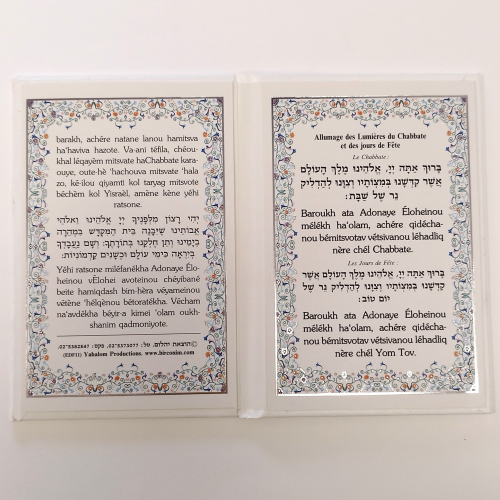 barakh, achére natane lanou hamitsva
ha'haviva hazote. Va-ani téfila, chéou-
khal léqayèm mitsvate haChabbate kara-
ouye, oute-hè 'hachouva mitsvate 'hala
zo, kè-ilou qiyamti kol taryag mitsvote
béchèm kol Yisraèl, amène kène yéhi
ratsone.
יהי רצון מלפניך יי אלהינו ואלהי
אבותינו שיבנה בית המקדש במהרה
בימינו ותן חלקנו בתורתך: ושם נעבדך
ביראה כימי עולם וכשנים קדמוניות:
Yéhi ratsone miléfanékha Adonaye Élo-
heinou vÉlohei avoteinou chéyibané
beite hamiqdash bim-hèra véyameinou
vétène 'hèlqènou bétoratékha. Vécham
na'avdékha béyir-a kimei 'olam oukh-
shanim qadmoniyote.
©הוצאת יהלום. טל: 02-5373077, פקס: 02-5362647.
(EDF11) Yahalom Productions. www.bircosim.com
Allumage des Lumières du Chabbate
et des jours de Fête
Le Chabbate :
בָּרוּךְ אַתָּה יְיָ, אֱלֹהֵינוּ מֶלֶךְ הָעוֹלָם
אֲשֶׁר קִדְּשָׁנוּ בְּמִצְוֹתָיו וְצִוָּנוּ לְהַדְלִיק
נֵר שֶׁל שַׁבָּת:
Baroukh ata Adonaye Éloheinou
mélékh ha'olam, achére qidécha-
nou bémitsvotav vétsivanou léhadliq
nère chél Chabbate.
Les Jours de Fête :
בָּרוּךְ אַתָּה יְיָ, אֱלֹהֵינוּ מֶלֶךְ הָעוֹלָם אֲשֶׁר
קִדְּשָׁנוּ בְּמִצְוֹתָיו וְצִוָּנוּ לְהַדְלִיק נֵר שֶׁל
יוֹם טוֹב:
Baroukh ata Adonaye Éloheinou
mélékh ha'olam, achére qidécha-
nou bémitsvotav vétsivanou léhadliq
nère chél Yom Tov.